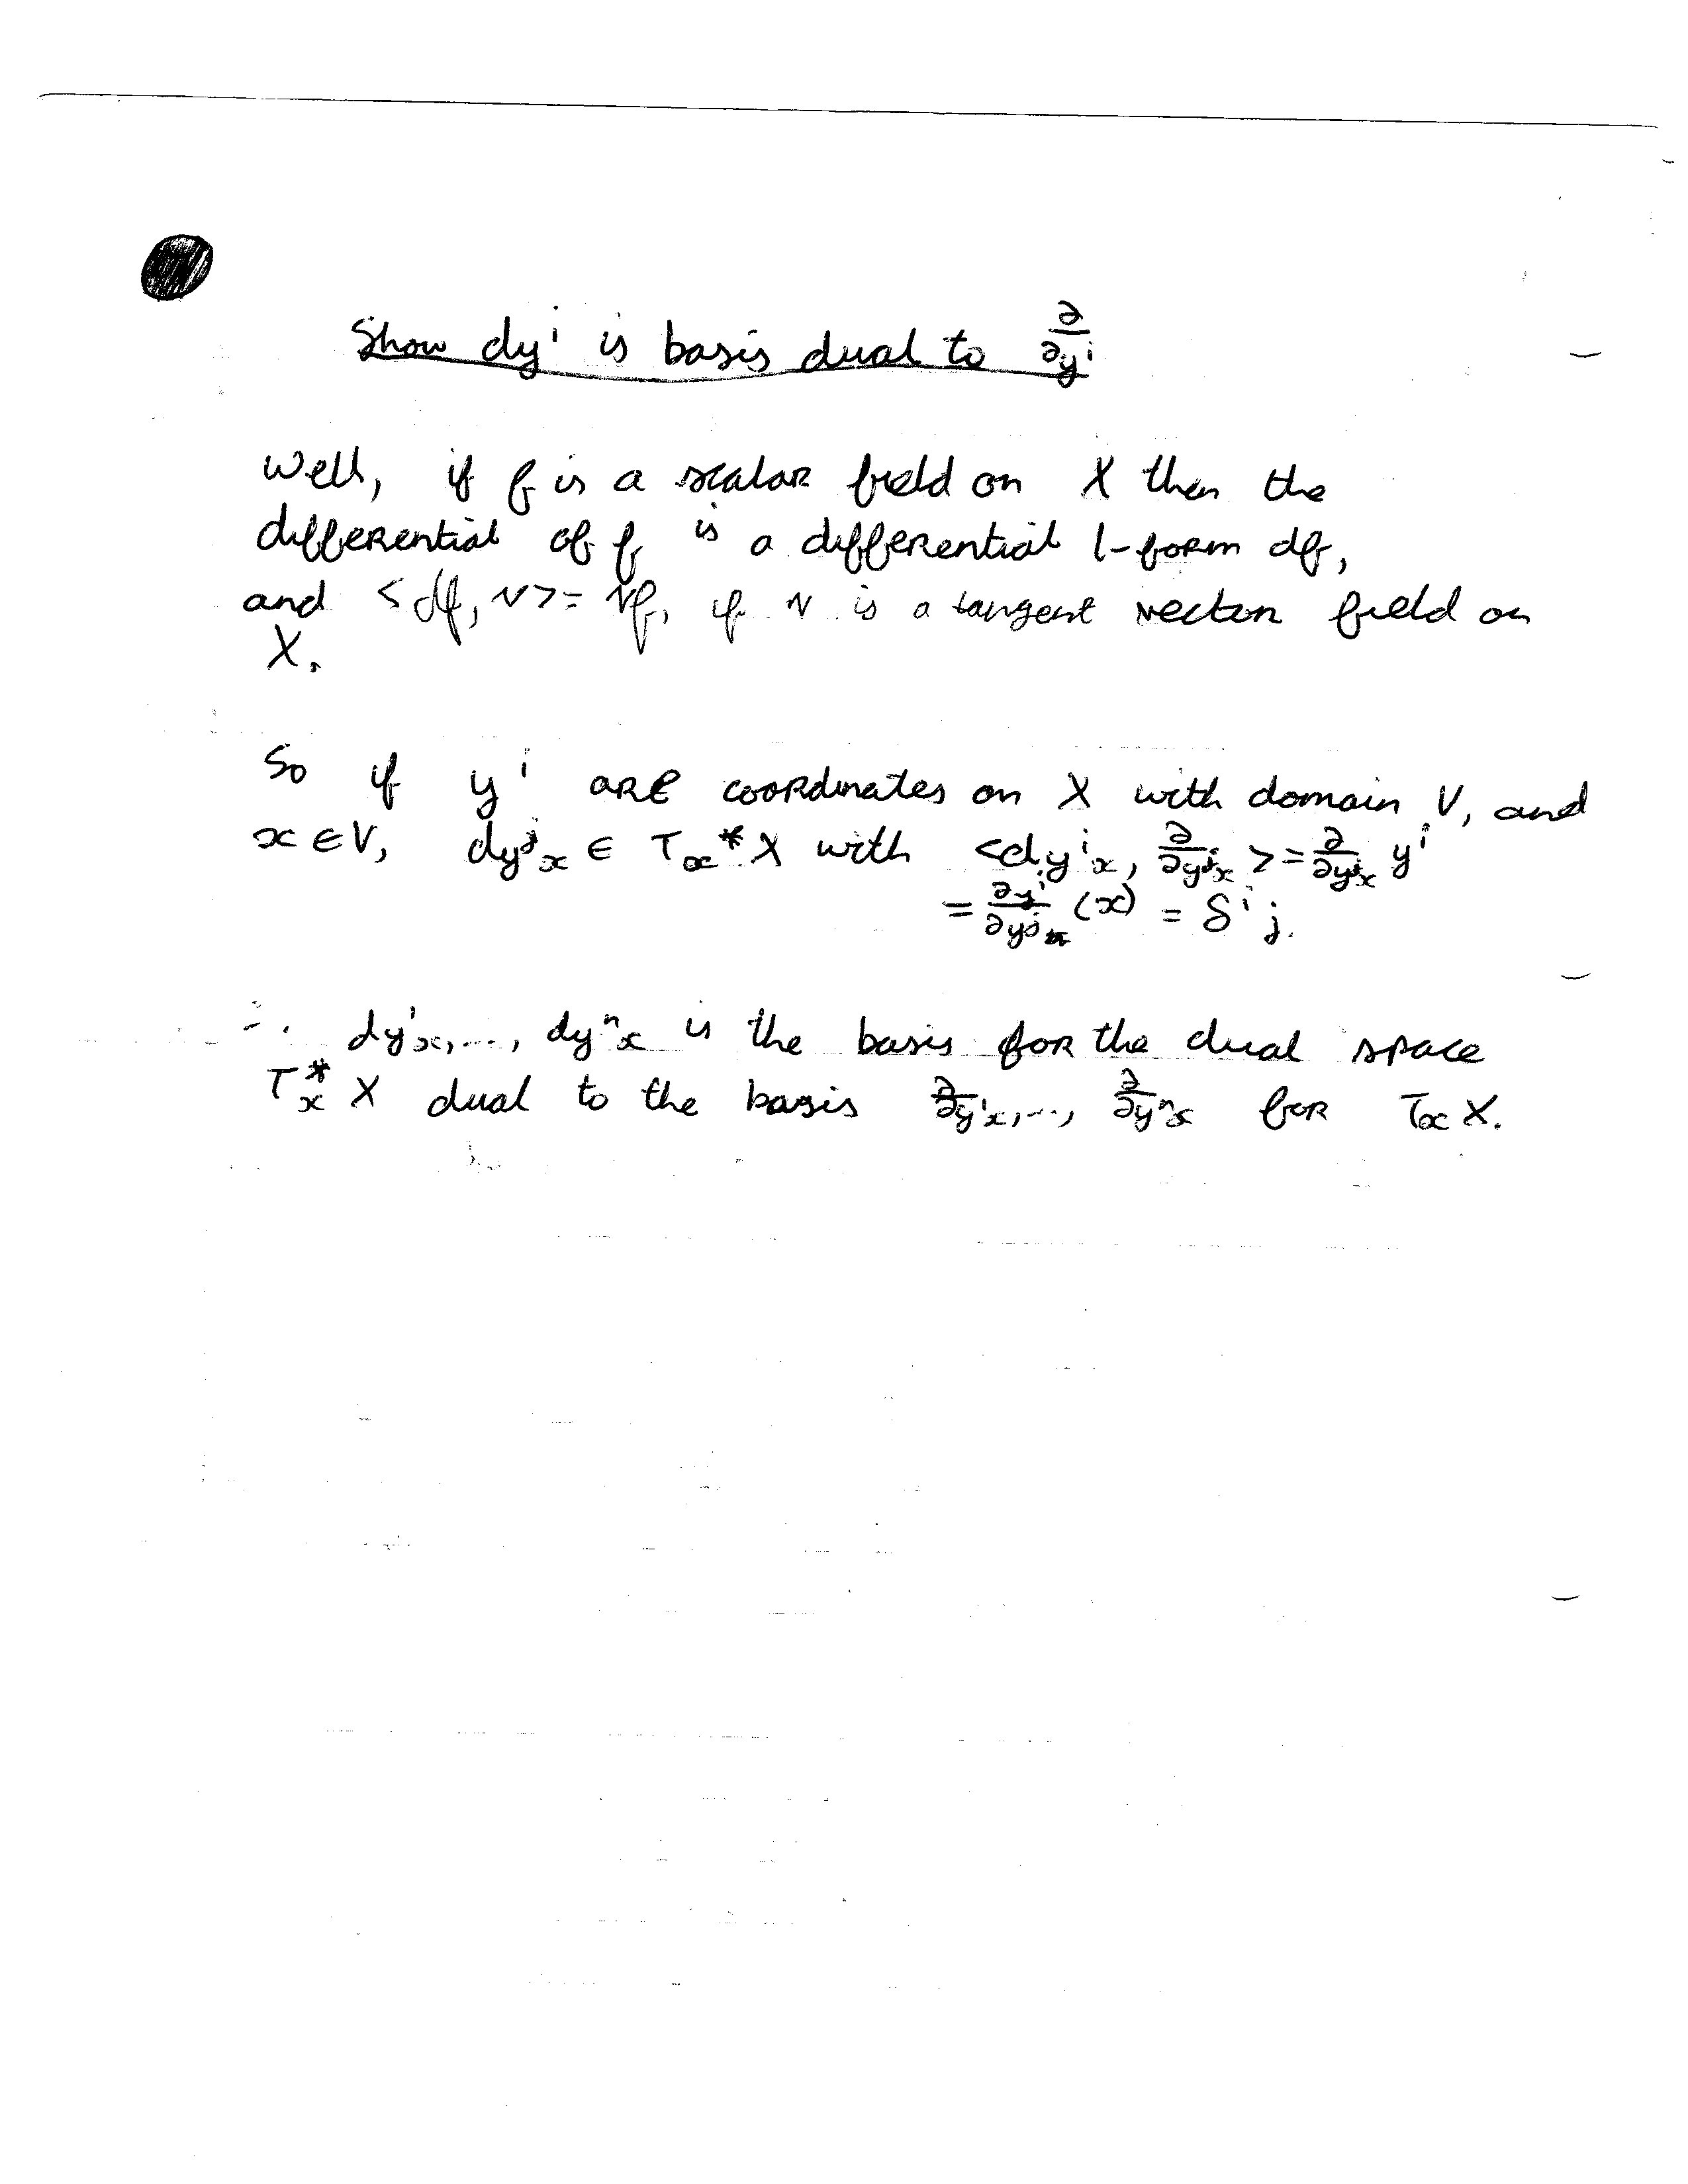 Show dyⁱ is basis dual to ∂/∂yⁱ
Well, if f is a scalar field on X then the
differential of f is a differential 1-form df,
and <df, v> = vf, if v is a tangent vector field on
X.
So if yⁱ are coordinates on X with domain V, and
x ∈ V, dyʲₓ ∈ Tₓ* X with <dyⁱₓ, ∂/∂yʲₓ> = ∂/∂yʲₓ yⁱ
= ∂yⁱ/∂yʲ (x) = δⁱⱼ.
∴ dy¹ₓ, ..., dyⁿₓ is the basis for the dual space
Tₓ* X dual to the basis ∂/∂y¹ₓ, ..., ∂/∂yⁿₓ for Tₓ X.